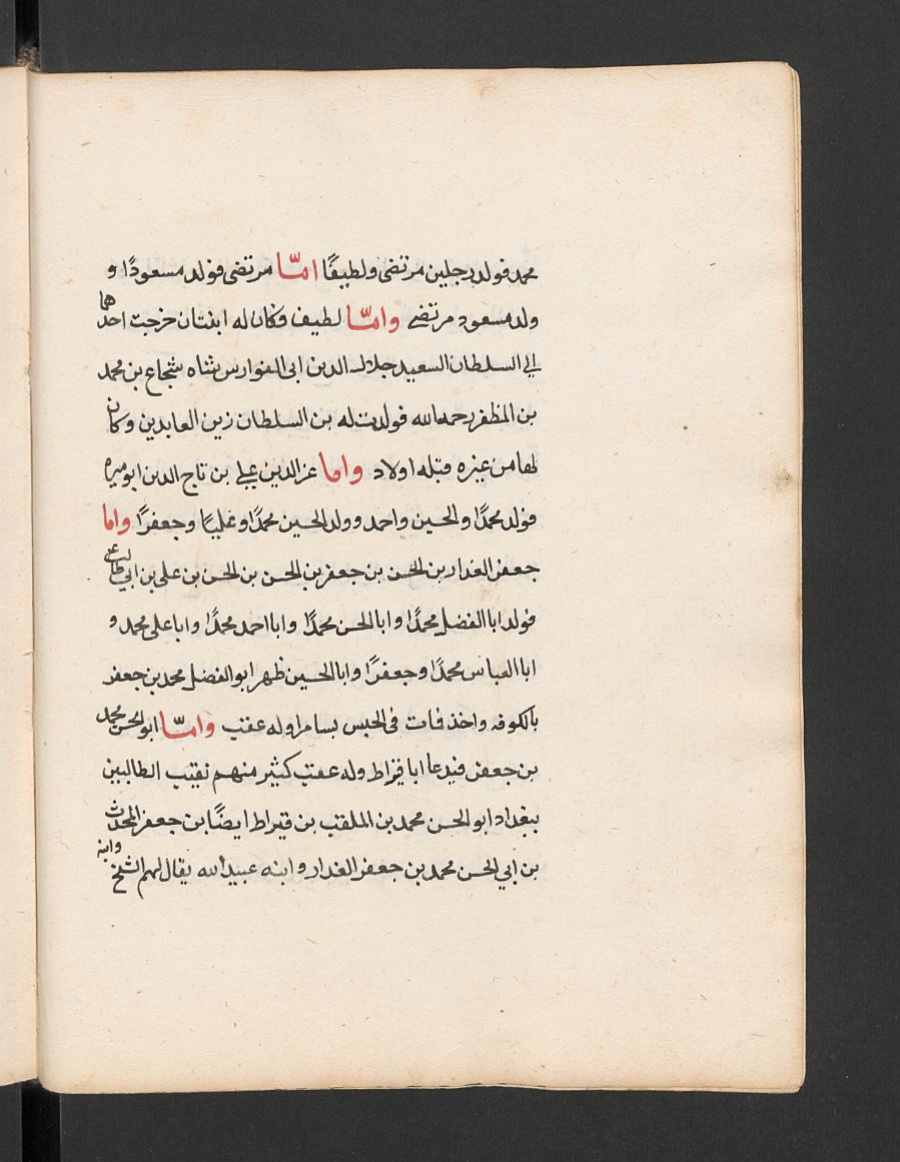 محمد فولد رجلين مرتضى ولطيفًا امّا مرتضى فولد مسعودًا و
ولد مسعود مرتضى وامّا لطيف فكان له ابنتان خرجت احدهما
الي السلطان السعيد جلال الدين ابى الفوارس شاه شجاع بن محمد
بن المظفر رحمه الله فولدت له بن السلطان زين العابدين وكان
لها من غيره قبله اولاد واما عز الدين على بن تاج الدين ابو ميره
فولد محمدًا والحسين واحمد وولد الحسين محمدًا وعليًا وجعفرًا واما
جعفر الغدار بن الحسن بن جعفر بن الحسن بن الحسن بن على بن ابي طالب ع
فولد ابا الفضل محمدًا وابا الحسن محمدًا وابا احمد محمدًا وابا على محمد و
ابا العباس محمدًا وجعفرًا وابا الحسين ظهر ابو الفضل محمد بن جعفر
بالكوفه واخذ فمات فى الحبس بسامرا وله عقب وامّا ابو الحسن محمد
بن جعفر فيدعا ابا قيراط وله عقب كثير منهم نقيب الطالبين
ببغداد ابو الحسن محمد بن الملقب بن قيراط ايضًا بن جعفر المحدث
بن ابي الحسن محمد بن جعفر الغدار وابنه عبيد الله يقال لهم الشيخ وابنه